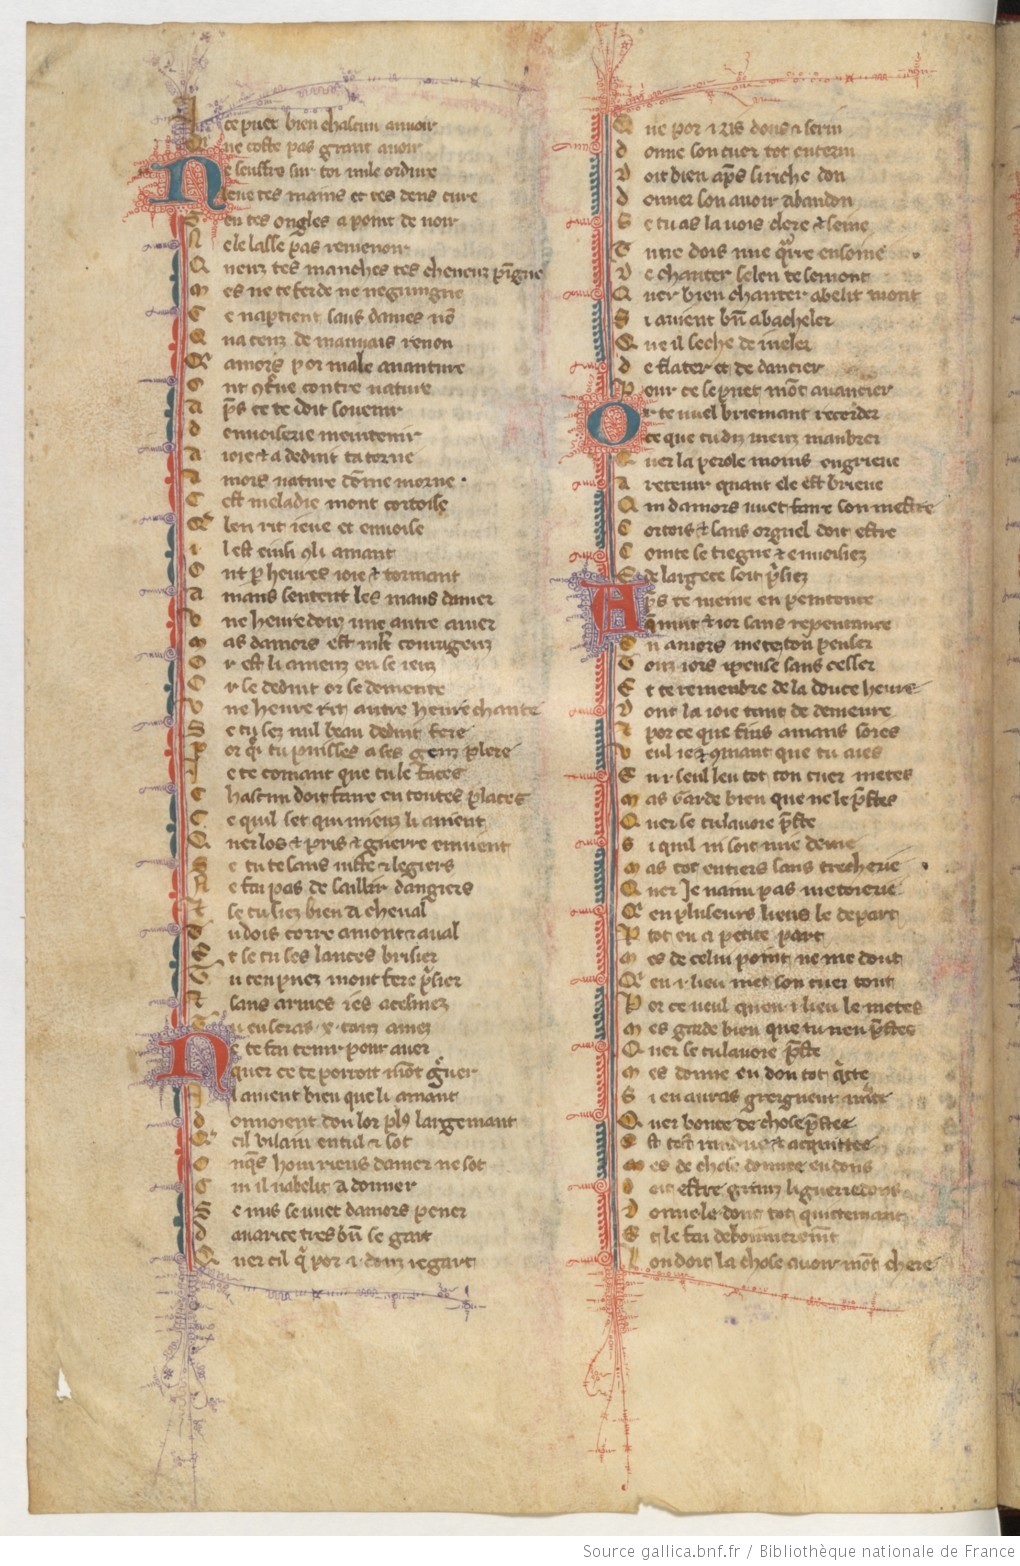 I ce puet bien chascun auoir
Que coste pas grant auoir
Ne seuffre sur toi nule ordure
Leue tes mains et tes dens cure
S en tes ongles a point de noir
N ele lasse pas remenoir
Queuz tes manches tes cheueuz pigne
M es ne te farde ne ne guigne
C e naptient sans dames nō
Q ua ceuz de mauuais renon
Q amors por male auanture
O nt 9tue contre nature
A ps ce te doit souenir
D enuoiserie meintenir
A ioie & a deduit ta torne
A mors nature dome morne
C est meladie mont cortoise
Q len rit ieue et enuoise
I l est einsi qli amant
O nt p heures ioie & tormant
A mans sentent les maus damer
V ne heure douz une autre amer
M as damors est mlt courageuz
O r est li amenz en se ieuz
O r se deduit or se demente
V ne heure rit autre heure chante
S e tu sez nul beau deduit fere
P or qi tu puisses a ses genz plere
I e te comant que tu le faces
C hascun doit faire en toutes places
C e quil set qui mieuz li auient
Q uer los & pris & guerre en uient
S e tu te sans uiste & legiers
N e fai pas de saillir dangiers
& se tu siez bien a cheual
T u dois corre amont & aual
E t se tu ses lances brisier
T u ten puez mont fere psier
& sans armes ies acesmez
T u en seras .x. tanz amez
Ne te fai tenir pour auer
Quer ce te porroit mōt greuer
I l auient bien que li amant
D onnoient don lor pl9 largemant
Q cil vilain entul & sot
O nqs hom riens damer ne sot
C ui il nabelit a donner
S e nus se uuet damors pener
D auarice tres bn se gart
Q uer cil q por .i. douz regart
Que por .i. ris douz & serin
D onne son cuer tot enterin
D oit bien aps si riche don
D onner son auoir abandon
S e tu as la uois clere & seine
T u ne dois mie qrre ensoine
D e chanter se len te semont
Q uer bien chanter abelit mont
S i auient bn a bacheler
Q ue il seche de uieler
D e flater et de dancier
P our ce se puet mōt auancier
Or te uuel briemant recorder
Ce que tu diz mieuz manbrer
Quer la parole moins engrieue
A retenir quant ele est brieue
Q ui damors uuet faire son mestre
C ortois & sans orguel doit estre
C ointe se tiegne & enuoisiez
E de largece soit psiez
Aps te meine en penitence
A nuit & ior sans repentance
E n amors metes ton penser
T oiuz iors i pense sans cesser
E t te remenbre de la douce heure
D ont la ioie tant te demeure
& por ce que fins amans soies
V eul ie & 9mant que tu aies
E n .i. seul leu tot ton cuer metes
M as garde bien que ne le pstes
Q uer se tu lauoie pste
S i quil ni soit mie demie
M as tot entiers sans trecherie
Q uer Je nanu pas metoierie
Q en pluseurs lieus le depart
P tot en a petite part
M es de celui point ne me dout
Q en .i. lieu met son cuer tout
P or ce ueul quen .i. lieu le metes
M es garde bien que tu neu pstes
Q uer se tu lauoie pste
M es donne en don tot qte
S i en auras greigneur
Q uer bonte de chose pstee
E st tost & acquittee
M es de chose donnee en dons
D oit estre granz li guerredons
D onne le donc tot quittemant
E t le fai debonneremt
L on doit la chose auoir mōt chere